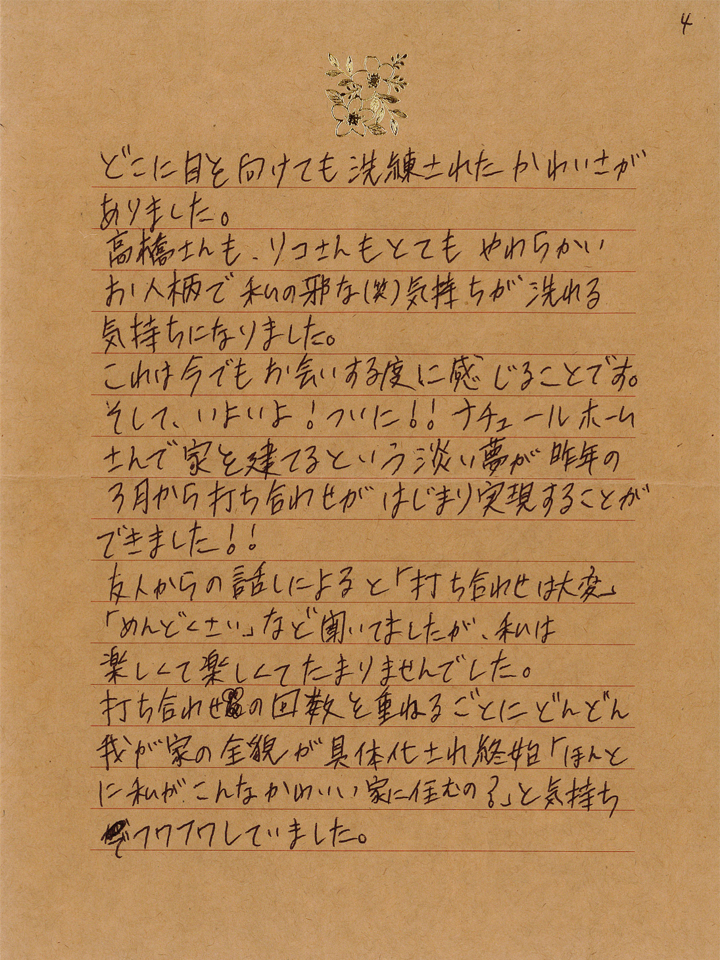 4
どこに目を向けても洗練されたかわいさが
ありました。
高橋さんも、リコさんもとてもやわらかい
お人柄で私の邪な(笑)気持ちが洗れる
気持ちになりました。
これは今でもお会いする度に感じることです。
そして、いよいよ!ついに!!ナチュールホーム
さんで家を建てるという淡い夢が昨年の
3月から打ち合わせがはじまり実現することが
できました!!
友人からの話しによると「打ち合わせは大変」
「めんどくさい」など聞いてましたが、私は
楽しくて楽しくてたまりませんでした。
打ち合わせの回数を重ねるごとにどんどん
我が家の全貌が具体化され終始「ほんと
に私がこんなかわいい家に住むの?」と気持ち
でフワフワしていました。